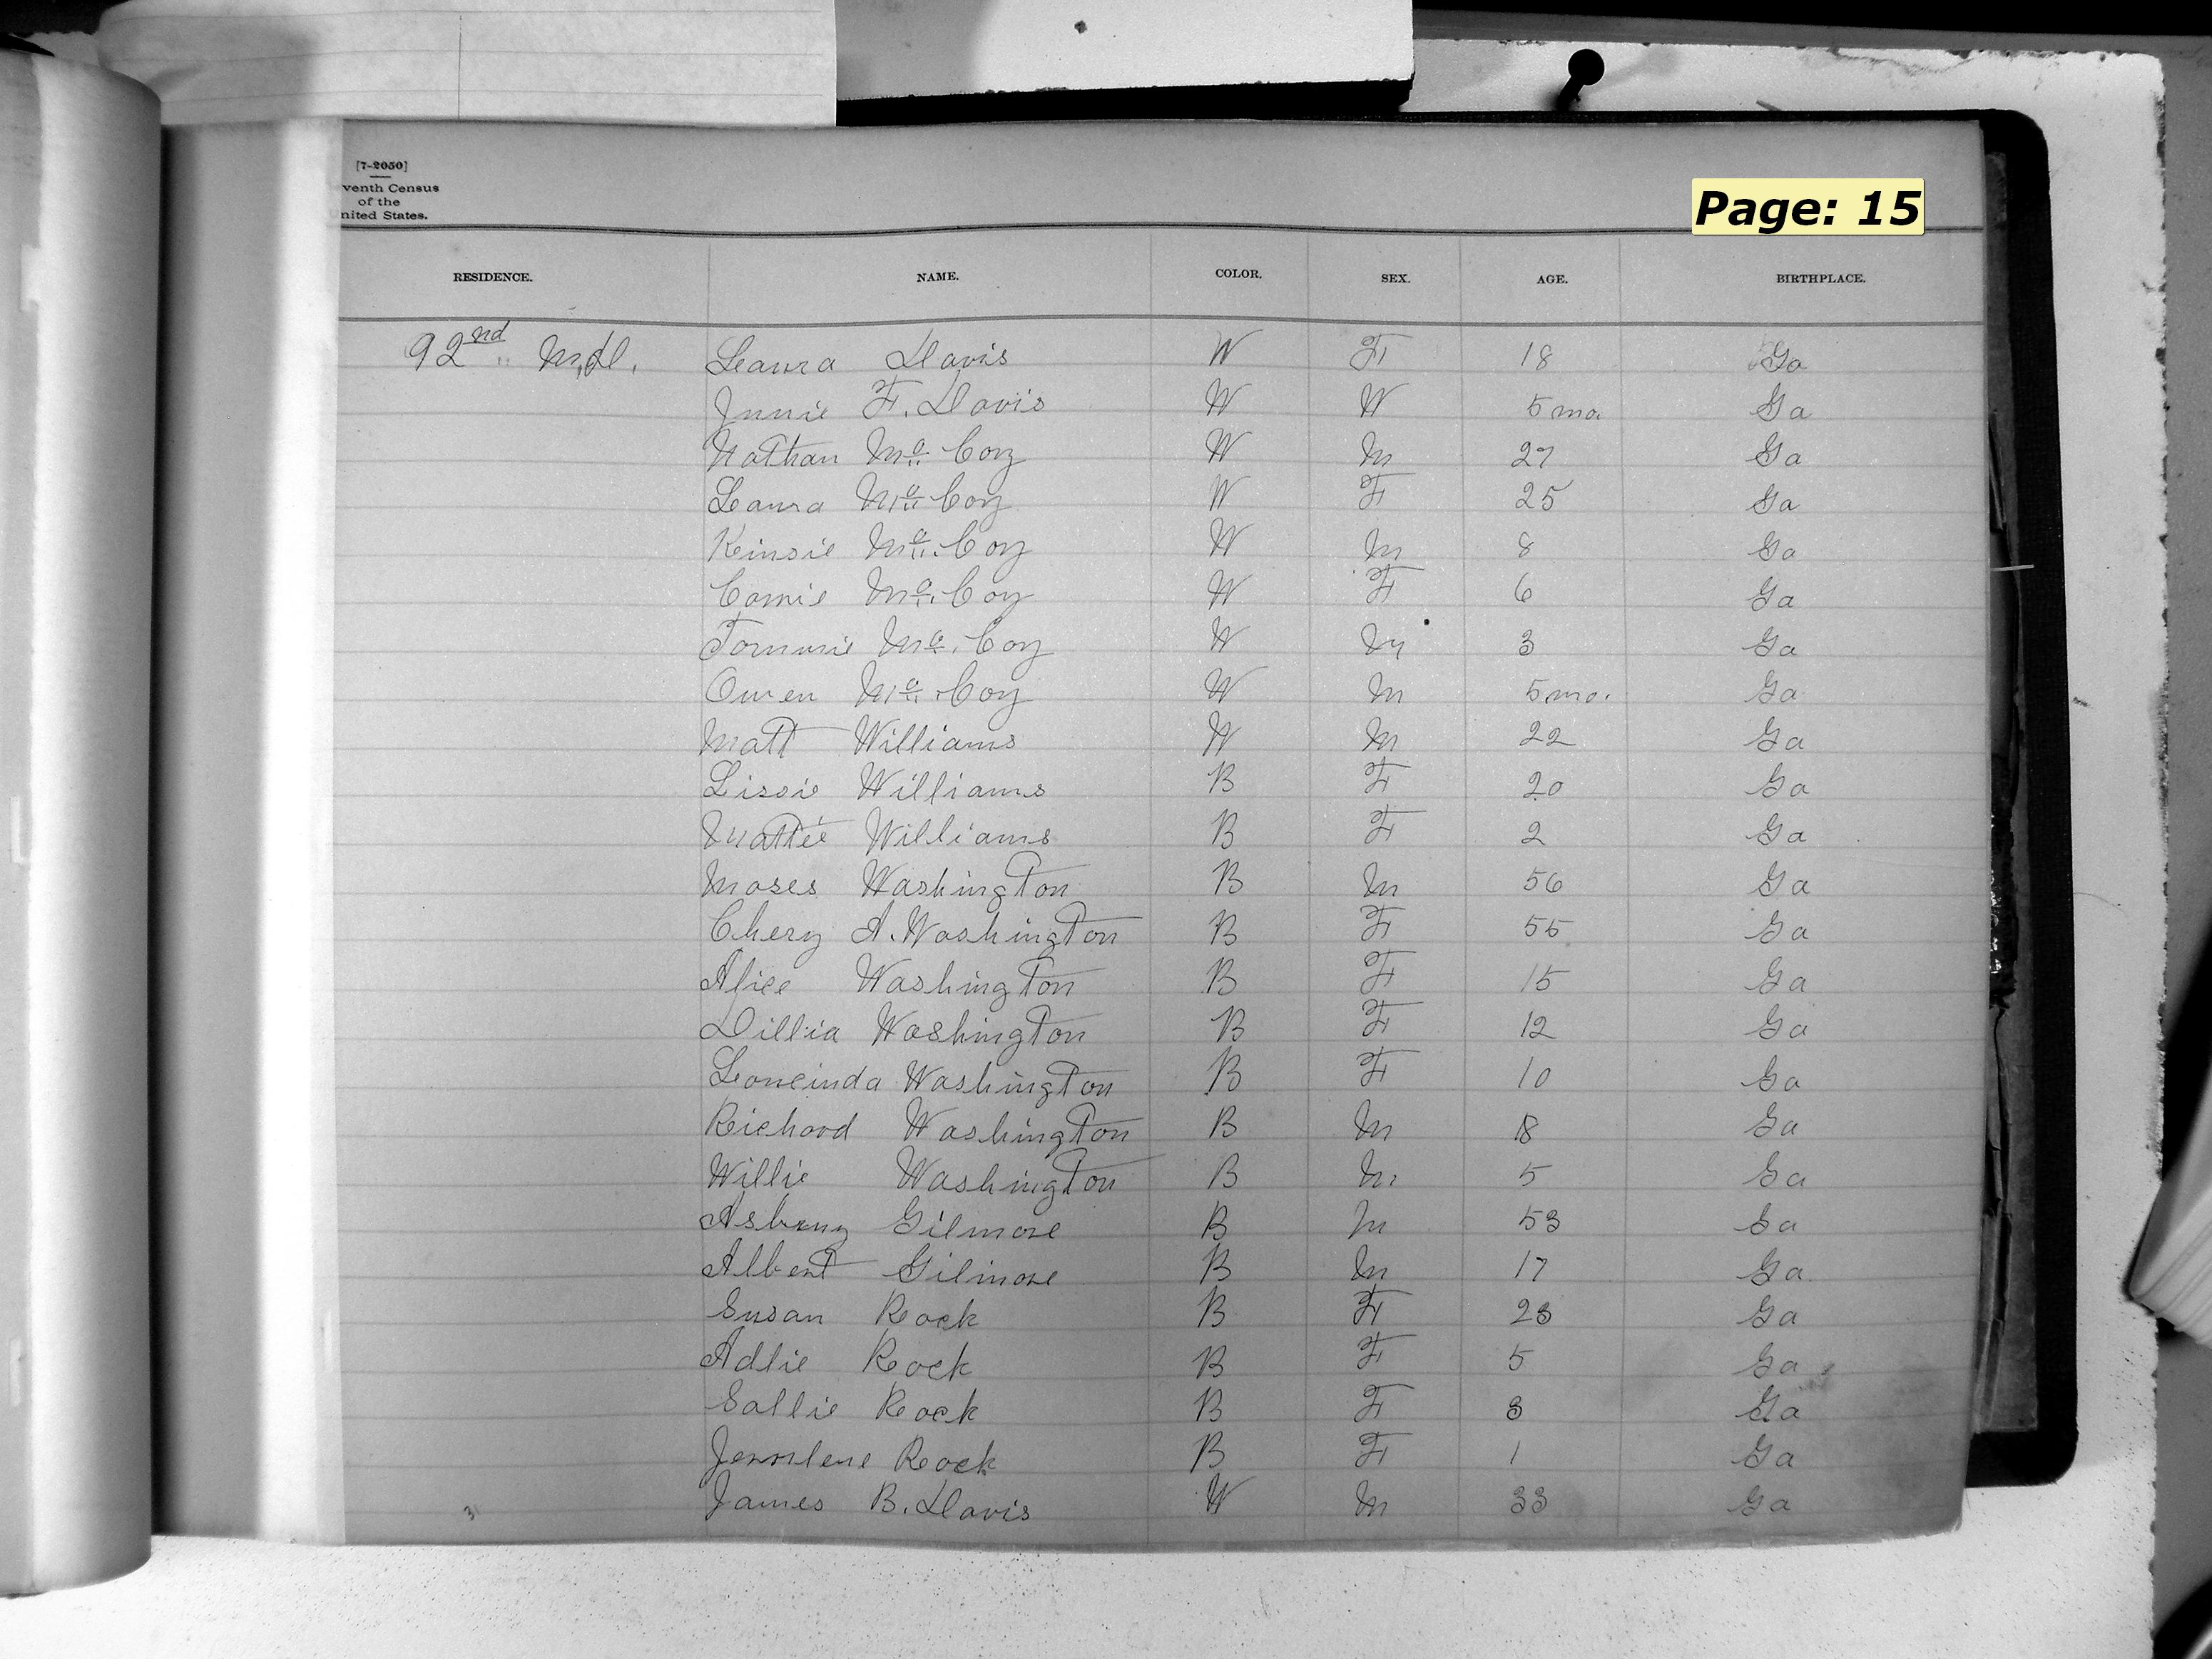 [7-2050]
venth Census
of the
nited States.
Page: 15
RESIDENCE. NAME. COLOR. SEX. AGE. BIRTHPLACE.
92nd M.D. Laura Davis W F 18 Ga
Junie F. Davis W W 5 mo. Ga
Nathan Mc Coy W M 27 Ga
Laura Mc Coy W F 25 Ga
Kinsie Mc Coy W M 8 Ga
Comie Mc Coy W F 6 Ga
Tommie Mc Coy W M 3 Ga
Owen Mc Coy W M 5 mo. Ga
Matt Williams W M 22 Ga
Lissie Williams B F 20 Ga
Mattie Williams B F 2 Ga
Moses Washington B M 56 Ga
Chery A. Washington B F 55 Ga
Alice Washington B F 15 Ga
Dillia Washington B F 12 Ga
Loucinda Washington B F 10 Ga
Richard Washington B M 8 Ga
Willie Washington B M 5 Ga
Asbury Gilmore B M 53 Ga
Albert Gilmore B M 17 Ga
Susan Rock B F 23 Ga
Adlie Rock B F 5 Ga
Sallie Rock B F 3 Ga
Rock B F 1 Ga
James B. Davis W M 33 Ga